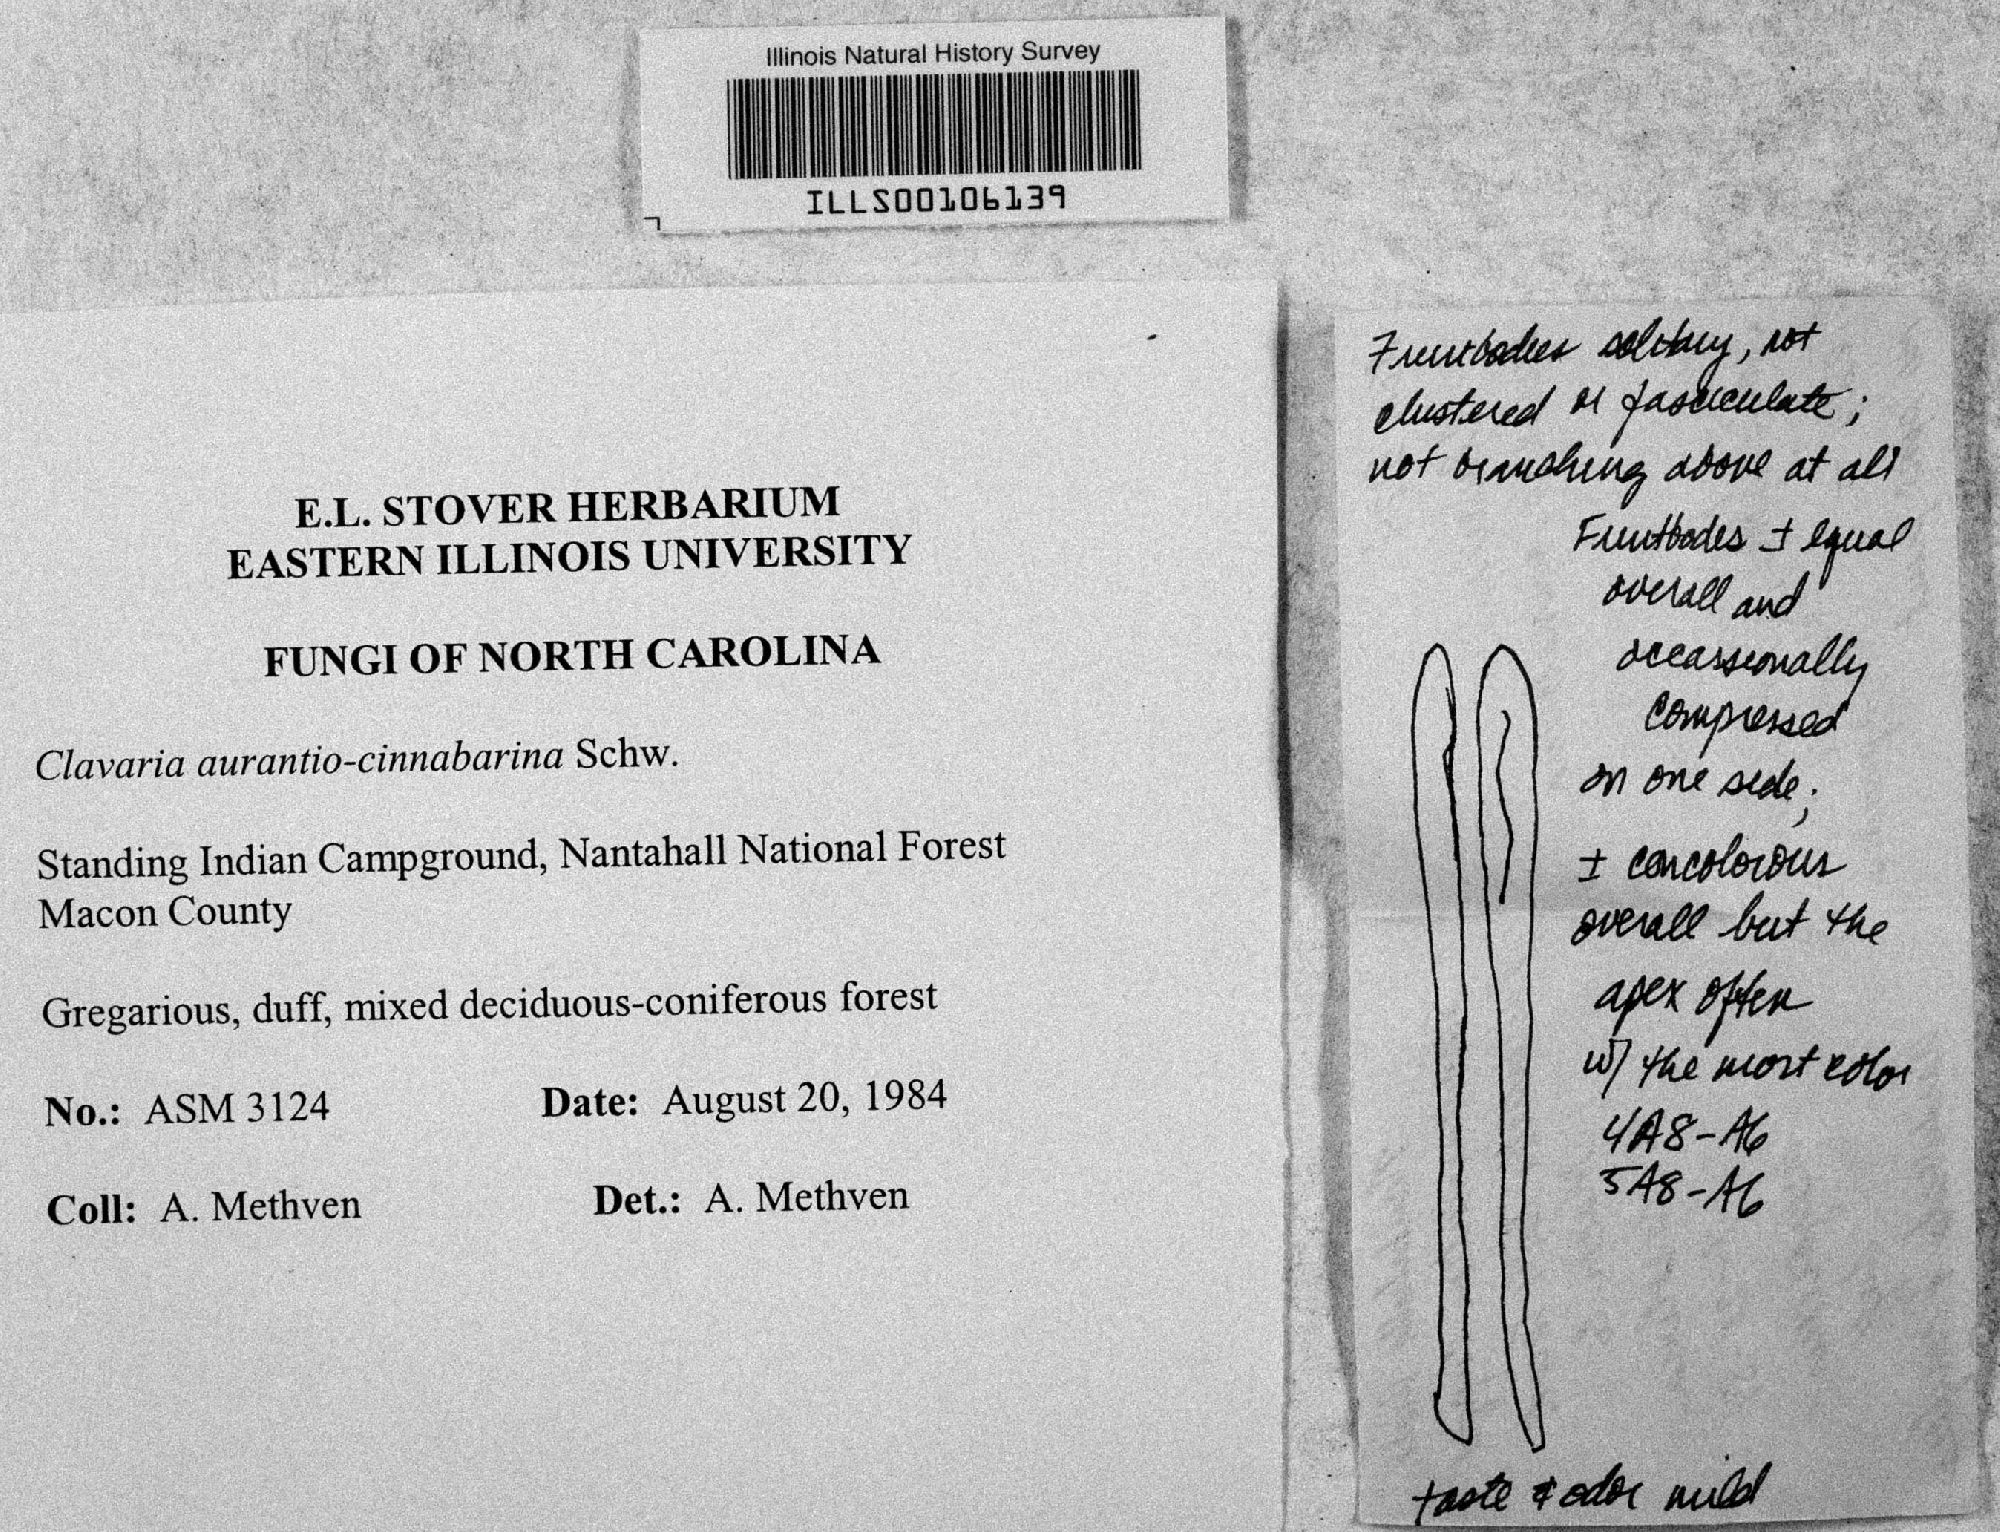 Illinois Natural History Survey
ILLS00106139
E.L. STOVER HERBARIUM
EASTERN ILLINOIS UNIVERSITY
FUNGI OF NORTH CAROLINA
Clavaria aurantio-cinnabarina Schw.
Standing Indian Campground, Nantahall National Forest
Macon County
Gregarious, duff, mixed deciduous-coniferous forest
No.: ASM 3124 Date: August 20, 1984
Coll: A. Methven Det.: A. Methven
Fruitbodies solitary, not
clustered or fasciculate;
not branching above at all
Fruitbodes ± equal
overall and
occassionally
compressed
on one side;
± concolorous
overall but the
apex often
w/ the most color
4A8-A6
5A8-A6
taste & odor mild